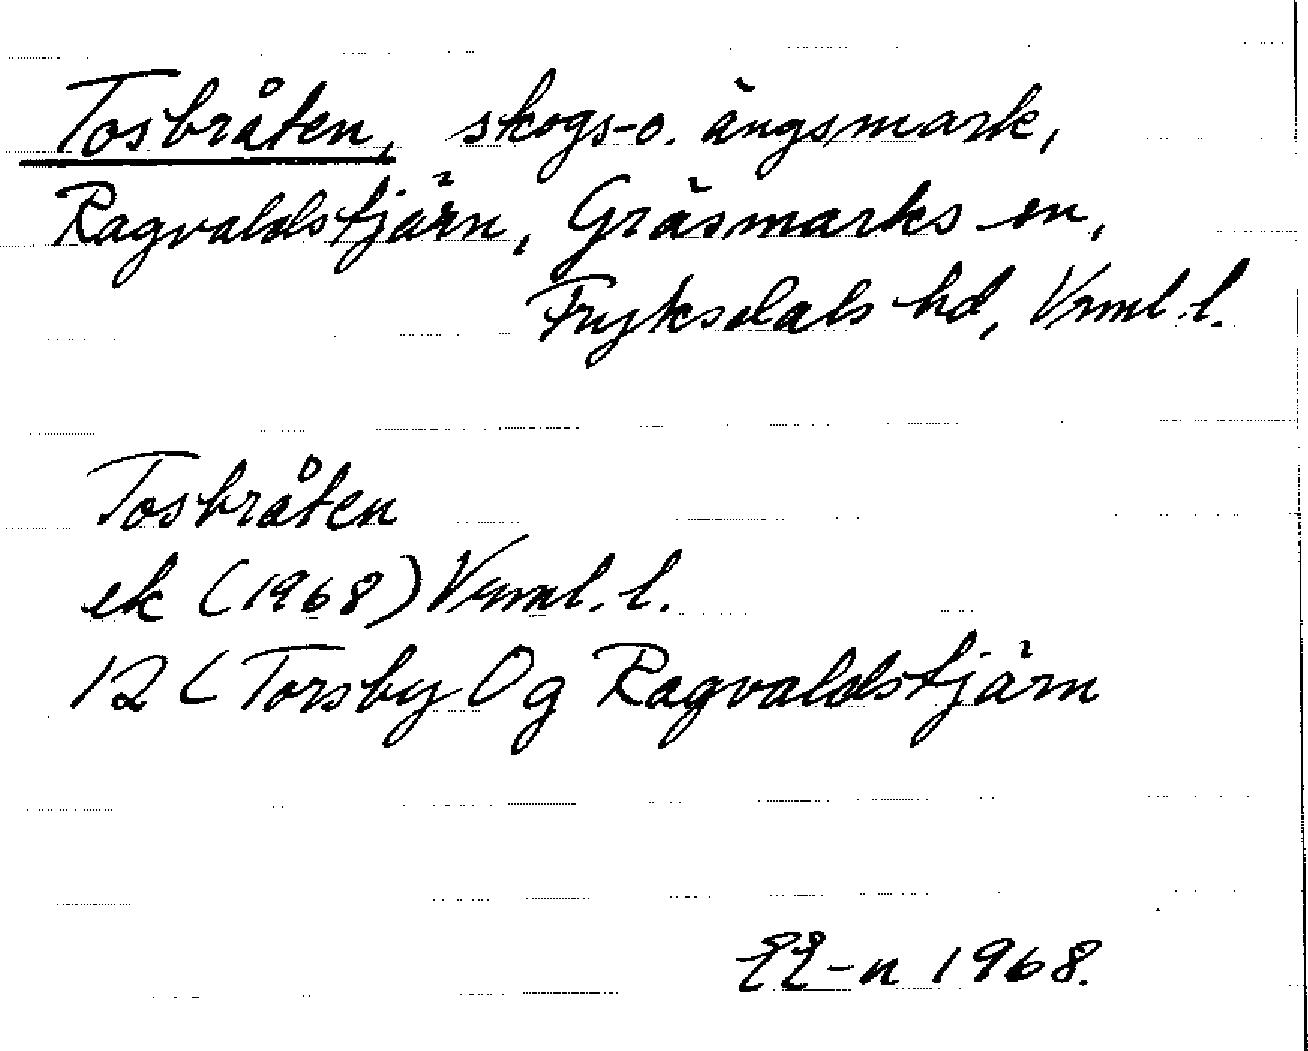 Tosbråten, skogs- o. ängsmark,
Ragvaldstjärn, Gräsmarks sn,
Fryksdals hd, Vrml. l.
Tosbråten
ek (1968) Vrml. l.
12 C Torsby 0 g Ragvaldstjärn
1968.